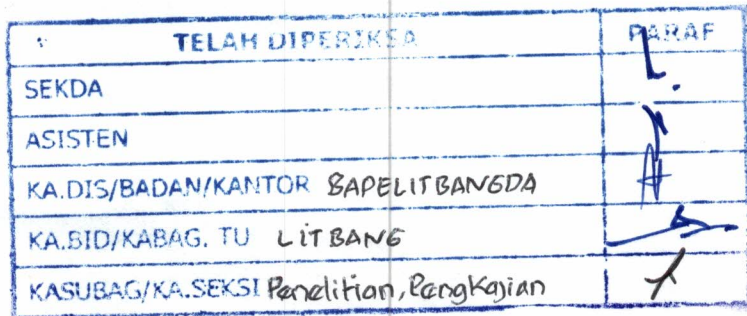 TELAH DIPERIKSA PARAF
SEKDA
ASISTEN
KA.DIS/BADAN/KANTOR BAPELITBANGDA
KA.BID/KABAG. TU LITBANG
KASUBAG/KA.SEKSI Penelitian, Pengkajian